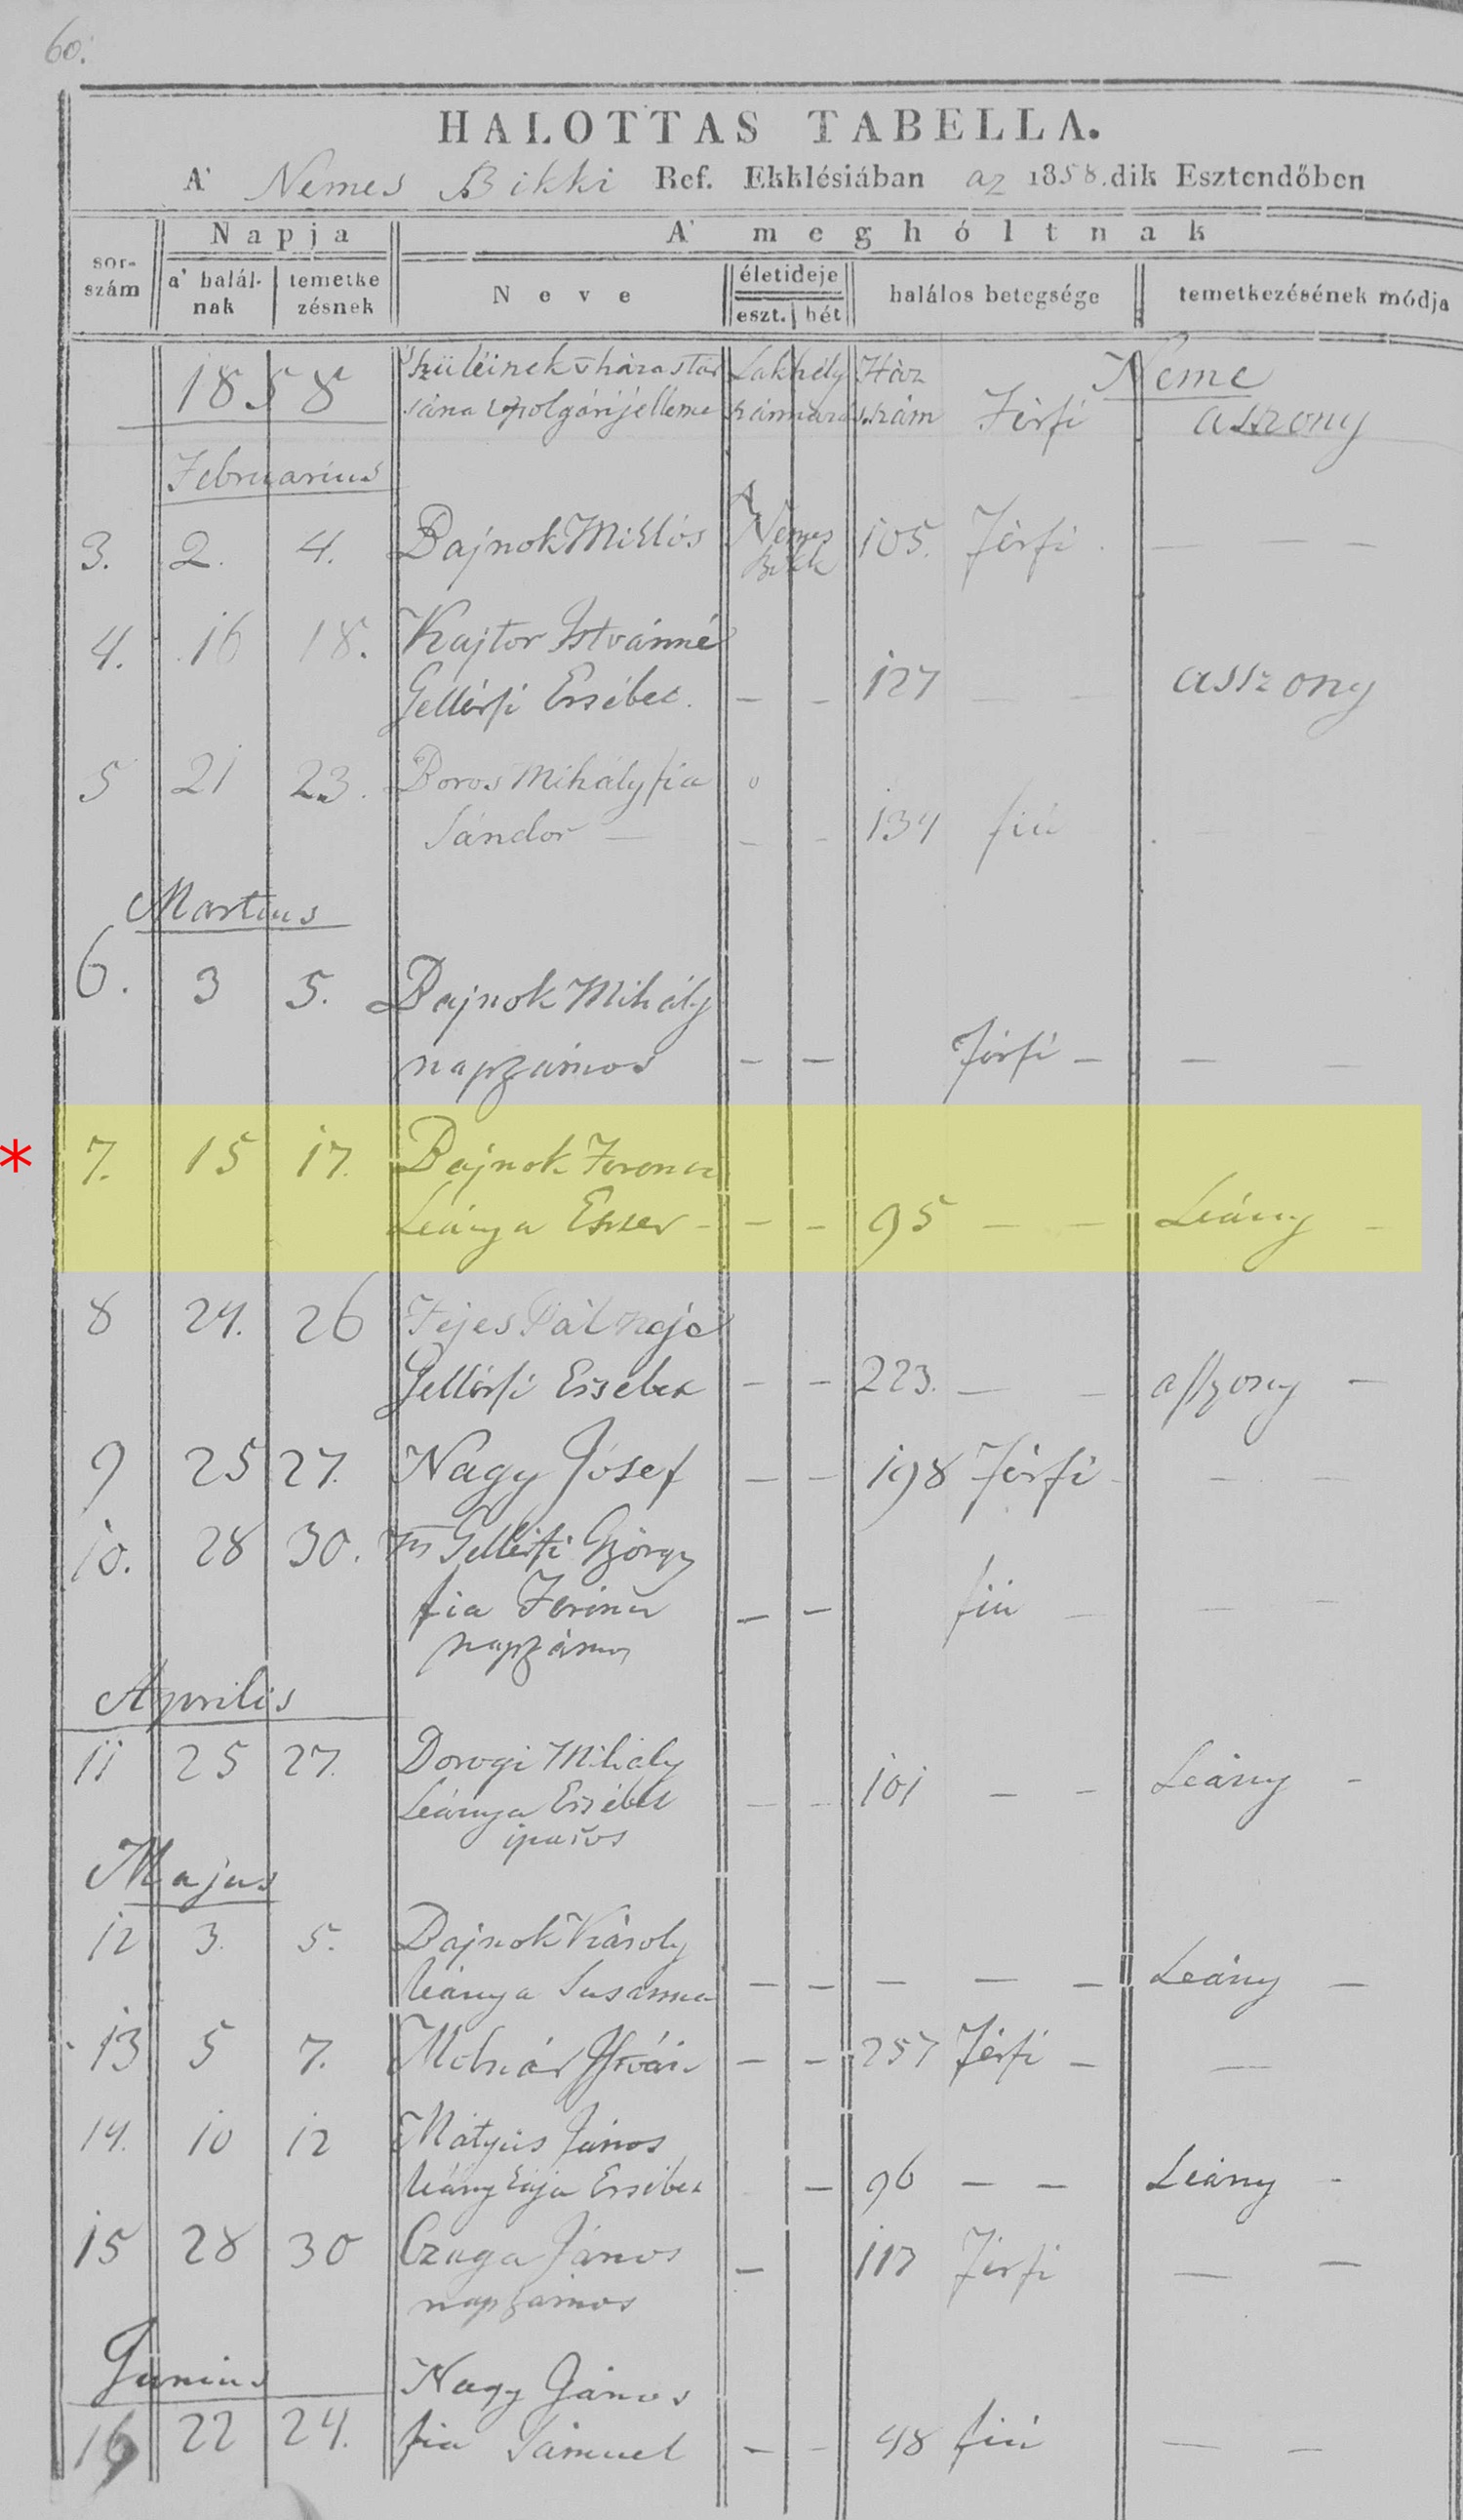 60.
HALOTTAS TABELLA.
A' Nemes Bikki Ref. Ekklésiában az 1858.dik Esztendőben
Napja
A' meghóltnak
sor-
szám
a' halál-
nak
temetke
zésnek
Neve
életideje
eszt. hét
halálos betegsége
temetkezésének módja
1858
szüleinek v házastár
sána v polgári jelleme
Lakhely
Ház
szám
Neme
Férfi
asszony
Februarius
3. 2. 4. Bajnok Miklós
Nemes
Bikk
105. Férfi — — —
4. 16 18. Kajtor Istvánné
Gellérfi Ersébet. — — 127 — — asszony
5 21 23. Boros Mihály fia
Sándor — — — 134 fiú
Martius
6. 3 5. Bajnok Mihály
napszámos — — Férfi — — —
* 7. 15 17. Bajnok Ferencz
Leánya Eszter — — — 95 — — Leány —
8 24. 26 Fejes Pál neje
Gellérfi Ersébet — — 223. — — asszony —
9 25 27. Nagy Jósef — — 198 Férfi — — —
10. 28 30. Gellérfi György
fia Ferencz — — fiú — — —
napszámos
Aprilis
11 25 27. Dorogi Mihály
Leánya Ersébet — — 101 — — Leány —
iparos
Majus
12 3. 5. Bajnok Károly
leánya Susánna — — — — — Leány —
13 5 7. Molnár István — — 257 Férfi — —
14. 10 12 Mátyus János
Ersébet — 96 — — Leány -
15 28 30 Czaga János — 117 Férfi — —
napszámos
Junius
Nagy János
16 22 24. fia Sámuel — — 48 fiú — —